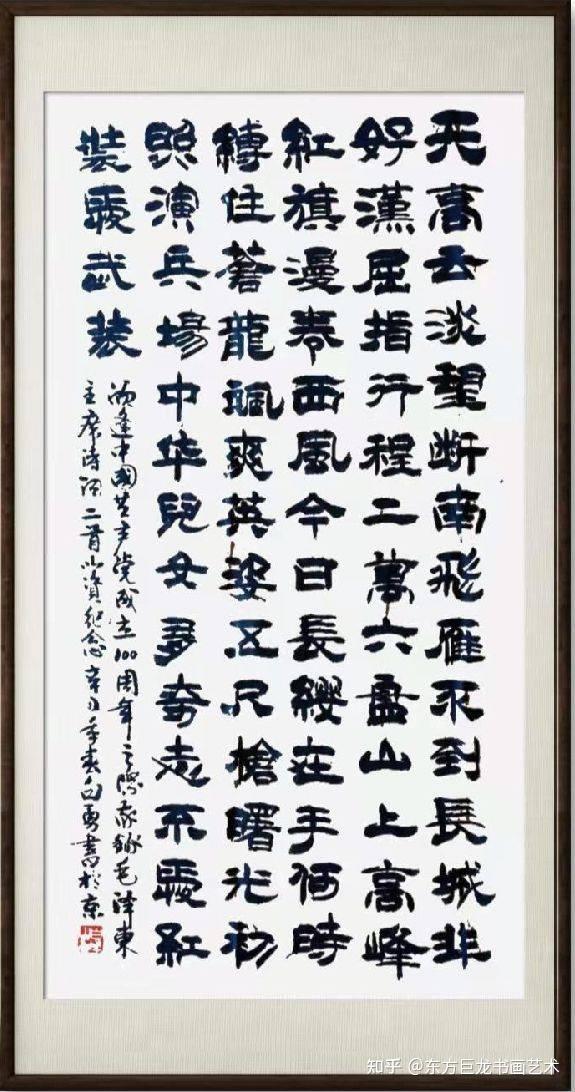 天高云淡望断南飛雁不到長城非
好漢屈指行程二萬六盘山上高峰
紅旗漫卷西風今日長纓在手何時
縛住蒼龍飒爽英姿五尺槍曙光初
照演兵場中华兒女多奇志不爱紅
裝爱武装
欣逢中國共產党成立100周年之際敬録毛泽東
主席诗词二首以資纪念辛丑年春白勇書於京
知乎 @东方巨龙书画艺术